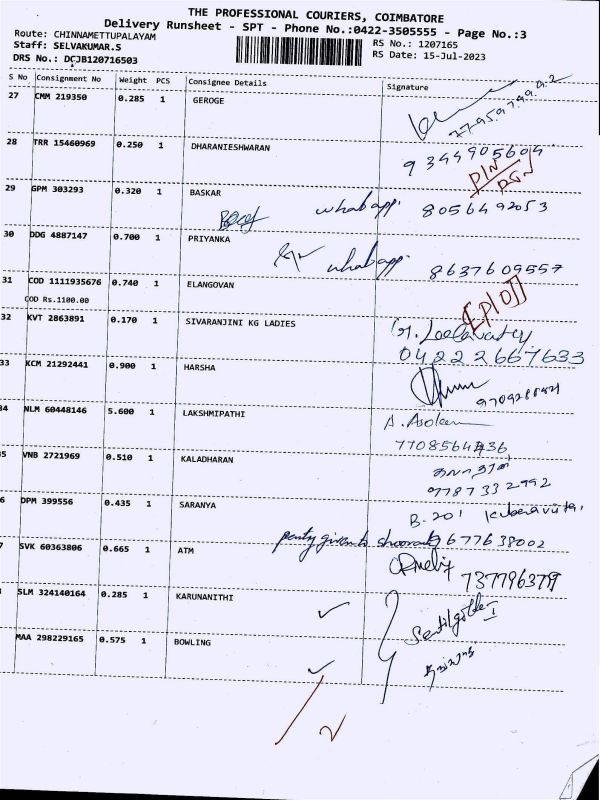 THE PROFESSIONAL COURIERS, COIMBATORE
Delivery Runsheet - SPT - Phone No.:0422-3505555 - Page No.:3
Route: CHINNAMETTUPALAYAM
Staff: SELVAKUMAR.S
DRS No.: DCJB120716503
RS No.: 1207165
RS Date: 15-Jul-2023
S No Consignment No Weight PCS Consignee Details Signature
27 CMM 219350 0.285 1 GEROGE
28 TRR 15460969 0.250 1 DHARANIESHWARAN 9344905604
29 GPM 303293 0.320 1 BASKAR
whatsapp. 8056492053
30 DDG 4887147 0.700 1 PRIYANKA
whatsapp. 8637609557
31 COD 1111935676 0.740 1 ELANGOVAN
COD Rs.1100.00
32 KVT 2863891 0.170 1 SIVARANJINI KG LADIES
04222667633
33 KCM 21292441 0.900 1 HARSHA
34 NLM 60448146 5.600 1 LAKSHMIPATHI A. Asokan
7708564436
35 VNB 2721969 0.510 1 KALADHARAN
9787332992
6 DPM 399556 0.435 1 SARANYA B-201
9677638002
7 SVK 60363806 0.665 1 ATM
737796379
SLM 324140164 0.285 1 KARUNANITHI
MAA 298229165 0.575 1 BOWLING
2